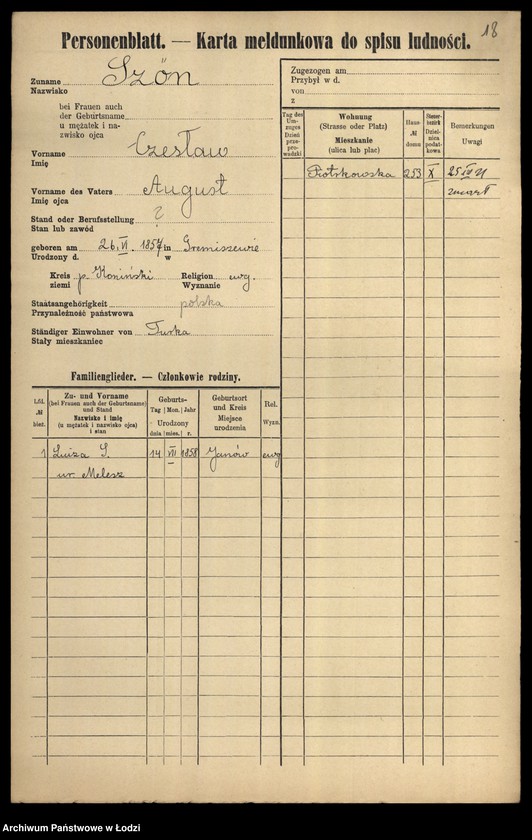 18
Personenblatt. — Karta meldunkowa do spisu ludności.
Zuname
Nazwisko
Szön
bei Frauen auch
der Geburtsname
u mężatek i na-
zwisko ojca
Vorname Czesław
Imię
Vorname des Vaters August
Imię ojca
Stand oder Berufsstellung ?
Stan lub zawód
geboren am 26.VI. 1857 in Gremiszewie
Urodzony d. w
Kreis p. Koniński Religion ewg.
ziemi Wyznanie
Staatsangehörigkeit polska
Przynależność państwowa
Ständiger Einwohner von Turka
Stały mieszkaniec
Familienglieder. — Członkowie rodziny.
Lfd. № bież.
Zu- und Vorname
(bei Frauen auch der Geburtsname)
und Stand
Nazwisko i imię
(u mężatek i nazwisko ojca)
i stan
Geburts-
Tag | Mon. | Jahr
Urodzony
dnia | mies. | r.
Geburtsort
und Kreis
Miejsce
urodzenia
Rel.
Wyzn.
1 Luiza S. 14 VII 1858 Janów ewg
ur. Melesz
Zugezogen am
Przybył w d.
von
z
Tag des
Um-
zuges
Dzień
prze-
prowadzki
Wohnung
(Strasse oder Platz)
Mieszkanie
(ulica lub plac)
Haus-
№
domu
Steuer-
bezirk
Dziel-
nica
podat-
kowa
Bemerkungen
Uwagi
Piotrkowska 253 X 25 IV 21
zmarł
Archiwum Państwowe w Łodzi